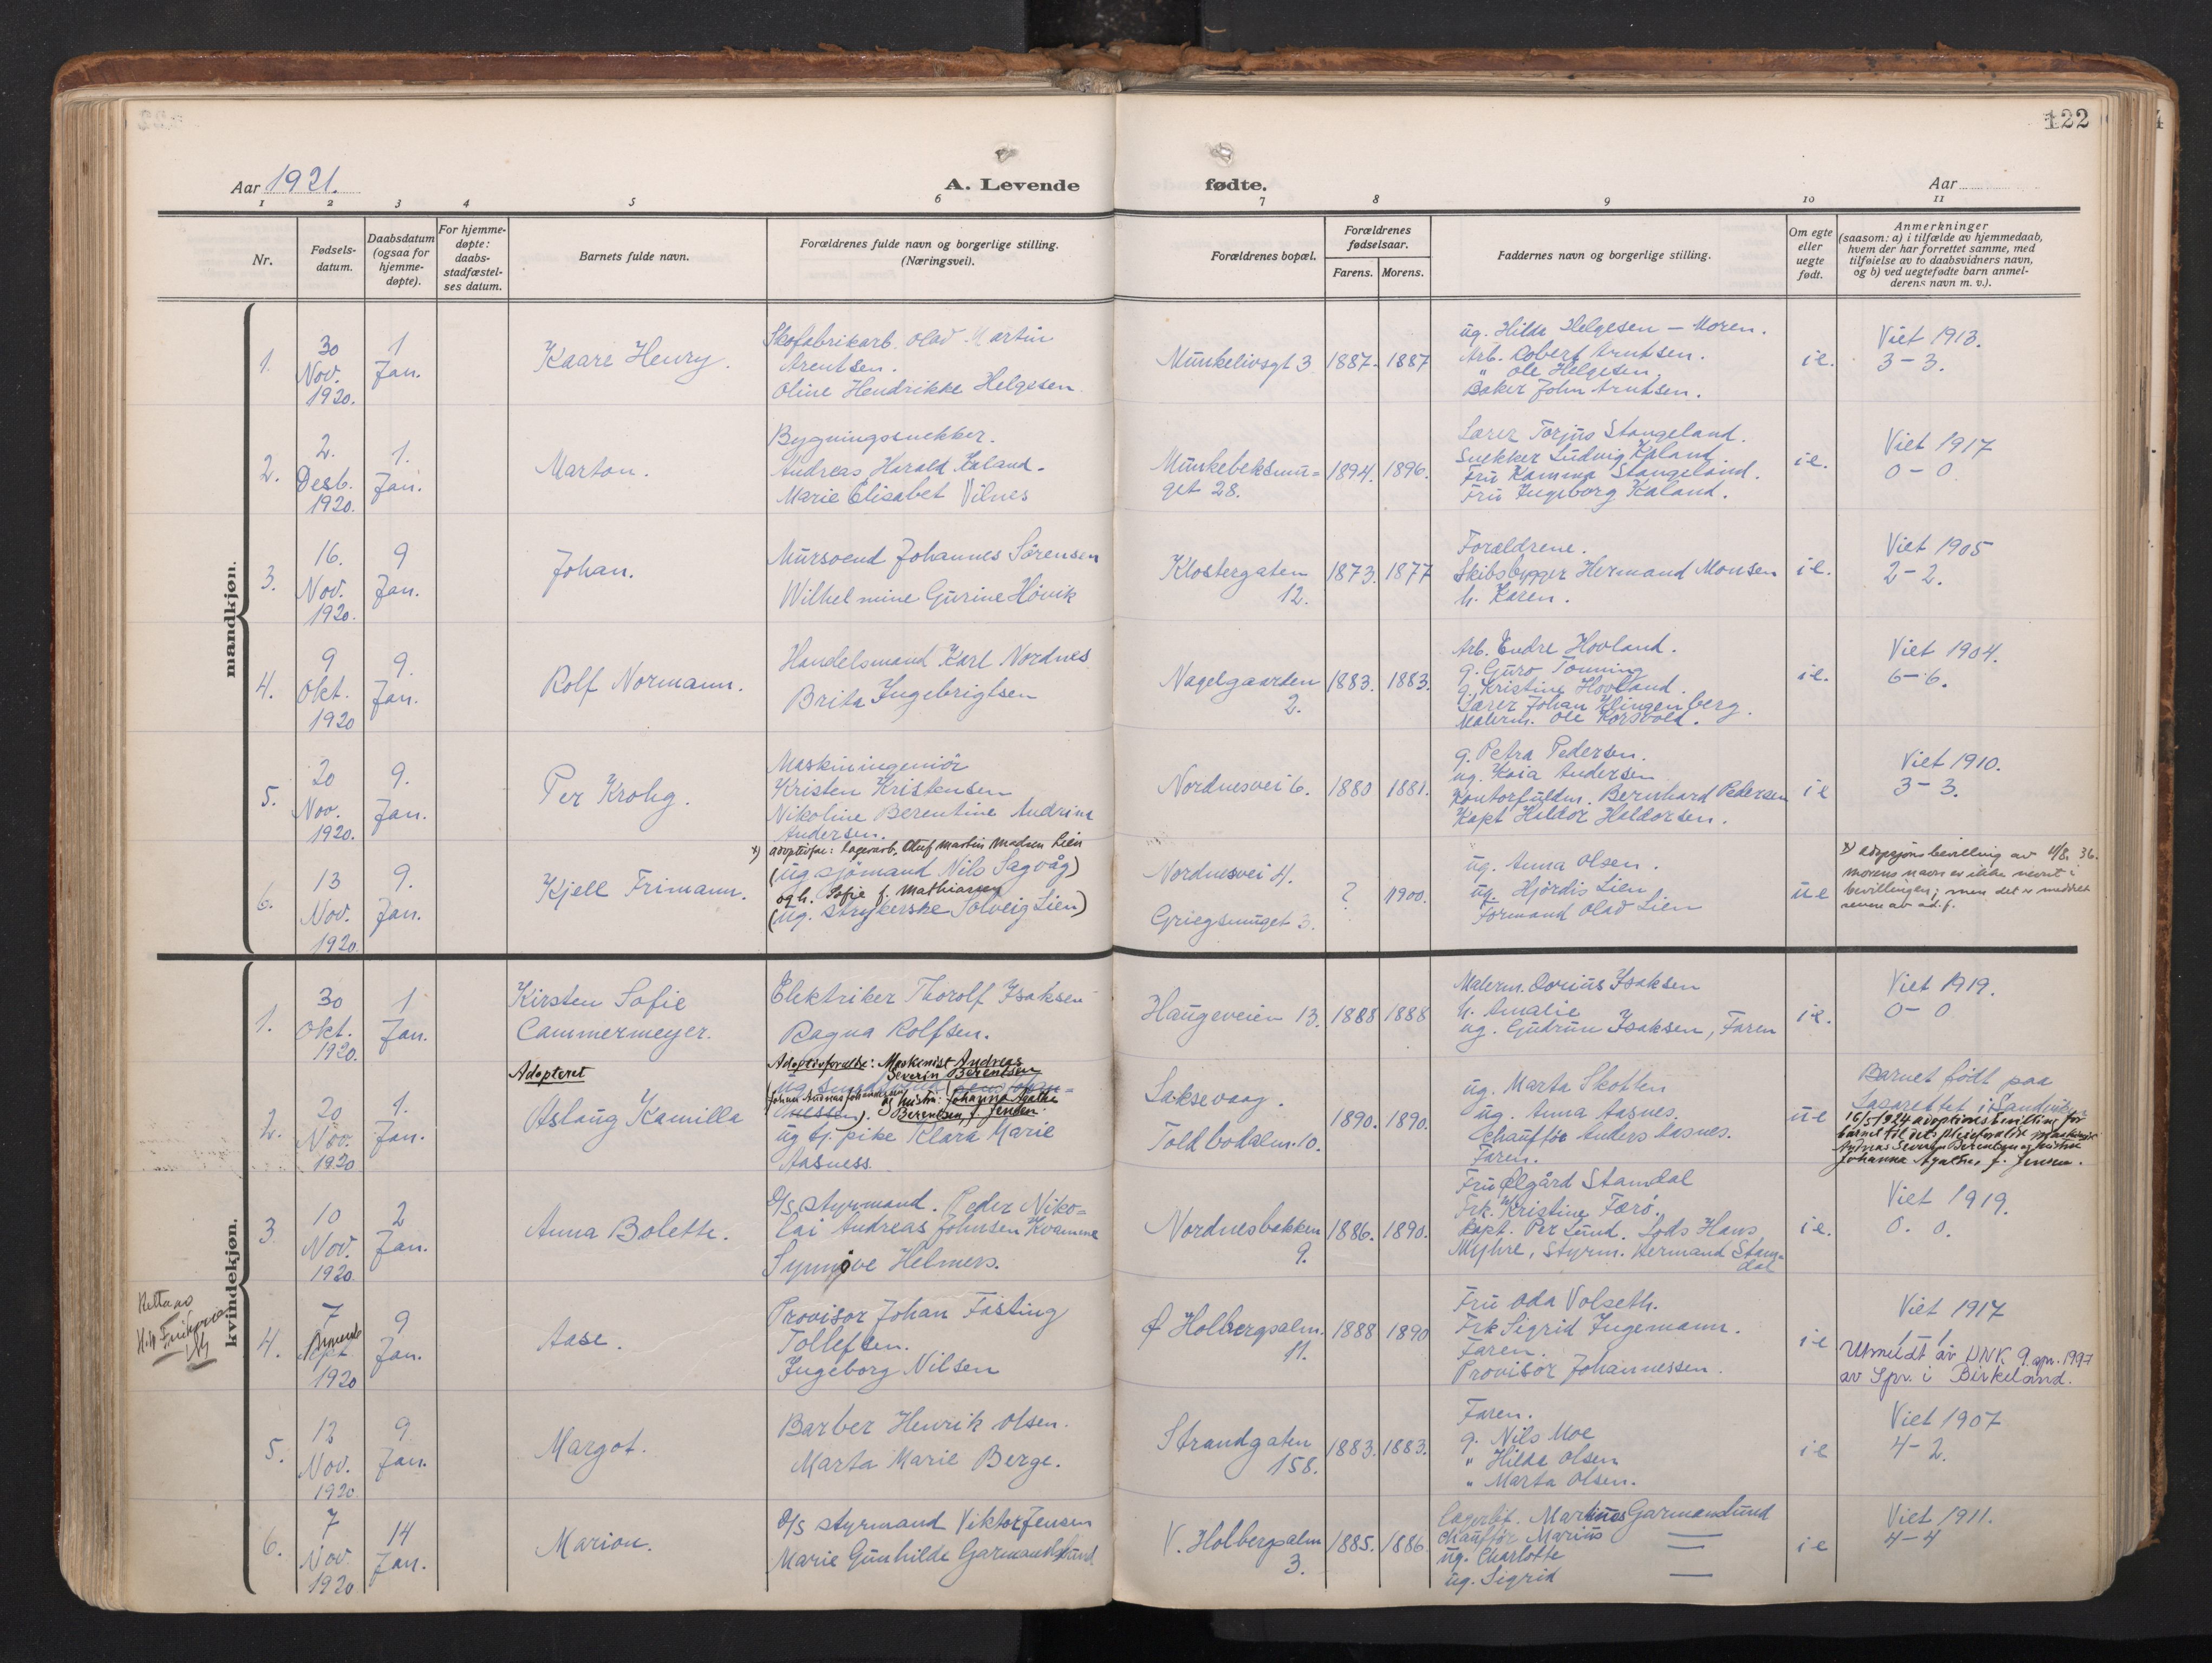 122
Aar 1921.
A. Levende fødte.
Aar
1 2 3 4 5 6 7 8 9 10 11
Nr.
Fødsels-
datum.
Daabsdatum
(ogsaa for
hjemme-
døpte).
For hjemme-
døpte:
daabs-
stadfæstel-
ses datum.
Barnets fulde navn.
Forældrenes fulde navn og borgerlige stilling.
(Næringsvei).
Forældrenes bopæl.
Forældrenes
fødselsaar.
Farens. Morens.
Faddernes navn og borgerlige stilling.
Om egte
eller
uegte
født.
Anmerkninger
(saasom: a) i tilfælde av hjemmedaab,
hvem der har forrettet samme, med
tilføielse av to daabsvidners navn,
og b) ved uegtefødte barn anmel-
derens navn m. v.).
mandkjøn.
1.
30
Nov.
1920.
1
Jan.
Kaare Henry.
Skofabrikarb. Olav Martin
Arentsen.
Oline Hendrikke Helgesen
Munkelivsgt 3
1887. 1887
ug. Hilda Helgesen – Moren.
Arb. Robert Arntsen.
" Ole Helgesen
Baker John Arntsen.
ie.
Viet 1913.
3 – 3.
2.
2.
Desb.
1920.
1.
Jan.
Marton.
Bygningssnekker.
Andreas Harald Kaland.
Marie Elisabet Vilnes
Munkebeksmu=
get 28.
1894. 1896.
Lærer Torjus Stangeland.
Snekker Ludvig Kaland
Fru Kamma Stangeland.
Fru Ingeborg Kaland.
ie.
Viet 1917
0 – 0
3.
16.
Nov.
1920.
9
Jan.
Johan.
Mursvend Johannes Sørensen
Wilhelmine Gurine Høvik
Klostergaten
12.
1873. 1877
Forældrene.
Skibsbygger Hermand Monsen
h. Karen.
ie.
Viet 1905
2 – 2.
4.
9
Okt.
1920
9.
Jan.
Rolf Normann.
Handelsmand Karl Nordnes
Brita Ingebrigtsen
Nagelgaarden
2.
1883. 1883.
Arb. Endre Hovland.
g. Guro Tonning
g. Kristine Hovland.
Lærer Johan Klingenberg.
Malerm. Ole Korsvold.
ie.
Viet 1904.
6 – 6.
5.
20
Nov.
1920.
9.
Jan.
Per Krohg.
Maskiningeniør
Kristen Kristensen
Nikoline Berentine Andrina
Andersen.
Nordnesvei 6.
1880 1881.
g. Petra Pedersen.
ug. Kaia Andersen
Kontorfuldm. Bernhard Pedersen
Kapt Haldor Haldorsen.
ie
Viet 1910.
3 – 3.
6.
13
Nov.
1920.
9.
Jan.
Kjell Frimann.
x) adoptivfor: Lagerarb. Oluf Martin Madsen Lien
(ug sjömand Nils Sagvåg)
og h. Sofie f. Mathiassen
(ug. strykerske Solveig Lien)
Nordnesvei 4.
Griegsmuget 3.
? 1900.
ug. Anna Olsen.
ug. Hjørdis Lien
Formand Olav Lien
ue
x) adopsjonsbevilling av 4/8. 36.
morens navn er ikke nevnt i
bevillingen; men det er meddelt
senere av ad.f.
kvindekjøn.
1.
30
Okt.
1920.
1
Jan.
Kirsten Sofie
Cammermeyer.
Elektriker Thorolf Isaksen
Ragna Rolfsen.
Haugeveien 13.
1888 1888
Malerm. Dorius Isaksen
h. Amalie
ug. Gudrun Isaksen, Faren
ie.
Viet 1919.
0 – 0
2.
20
Nov.
1920
1.
Jan.
Adopteret
Aslaug Kamilla
Adoptivforældre: Maskinist Andreas
Severin Berentsen
Johan Andreas Johannesen
og hustru: Johanna Agathe
Berentsen, f. Jensen.
ug tj. pike Klara Marie
Aasness.
Laksevaag.
Toldbodalm. 10.
1890. 1890.
ug. Marta Skotten
ug. Anna Aasnes.
Chauffør Anders Aasnes.
Faren.
ue
Barnet født paa
Lasarettet i Sandviken
16/5 1924 adoptionsbevilling for
barnet til dets pleieforældre maskinist
Andreas Severin Berentsen og hustru
Johanna Agathe, f. Jensen.
3
10
Nov.
1920.
2
Jan.
Anna Bolette.
D/S styrmand. Peder Niko=
lai Andreas Johnsen Kvamme
Synnøve Helmers.
Nordnesbakken
9.
1886. 1890.
Fru Ølgård Stamdal
Frk. Kristine Færø.
Kapt. Per Lund. Lods Hans
Myhre, Styrm. Hermand Stam=
dal
ie.
Viet 1919.
0. 0.
Rettaas
4.
7
1920
9
Jan.
Aase.
Provisor Johan Fasting
Tollefsen.
Ingeborg Nilsen
Ø Holbergsalm.
11.
1888 1890
Fru Oda Volseth.
Frk Sigrid Ingemann.
Faren.
Provisor Johannessen.
ie
Viet 1917
1. 1.
Utmeldt av DNK 9. apr. 1997
av Spr. i Birkeland.
5.
12
Nov.
1920
9
Jan.
Margot.
Barber Henrik Olsen.
Marta Marie Berge.
Strandgaten
158.
1883. 1883.
Faren.
g. Nils Moe
" Hilda Olsen
" Marta Olsen.
ie
Viet 1907
4 – 2.
6.
7
Nov
1920
14
Jan.
Marion.
D/S styrmand Viktor Jensen
Marie Gunhilde Garmannslund.
V. Holbergsalm
3.
1885. 1886.
Lagerbt. Martinus Garmannslund
Chauffør Marius —
ug. Charlotte
ug. Sigrid —
ie
Viet 1911.
4 – 4